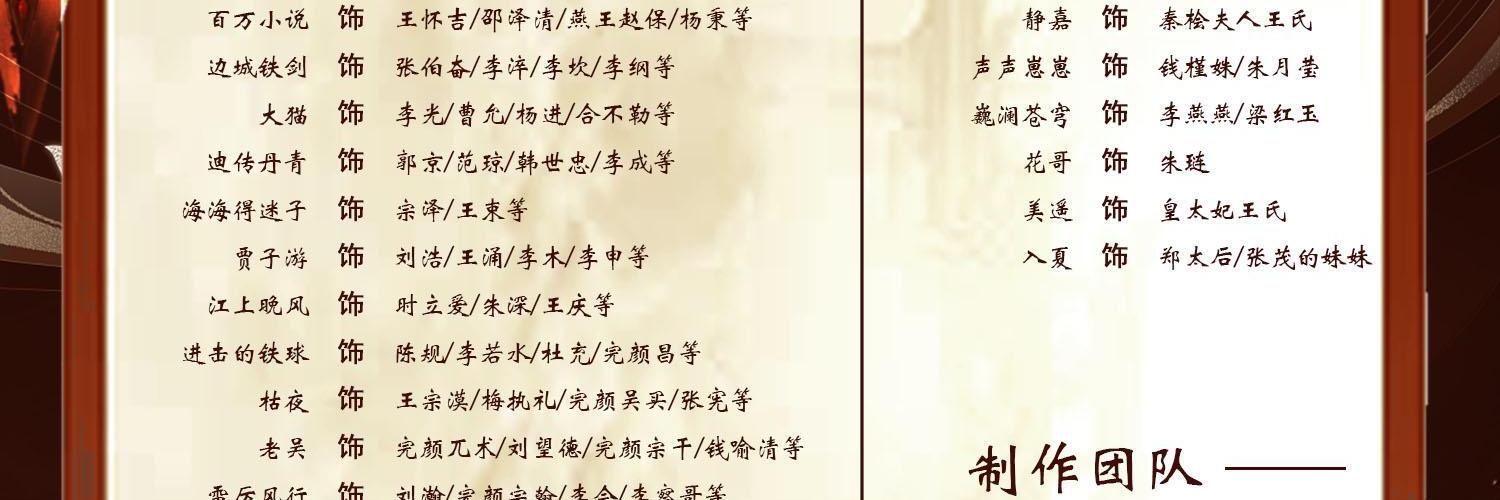 百万小说 饰 王怀吉/邵泽清/燕王赵保/杨秉等
边城铁剑 饰 张伯奋/李淬/李坎/李纲等
大猫 饰 李光/曹允/杨进/合不勒等
迪传丹青 饰 郭京/范琼/韩世忠/李成等
海海得迷子 饰 宗泽/王束等
贾子游 饰 刘浩/王涌/李木/李申等
江上晚风 饰 时立爱/朱深/王庆等
进击的铁球 饰 陈规/李若水/杜充/完颜昌等
枯夜 饰 王宗濋/梅执礼/完颜吴买/张宪等
老吴 饰 完颜兀术/刘望德/完颜宗干/钱喻清等
饰 刘瀚/完颜宗翰/李会/李察哥等
静嘉 饰 秦桧夫人王氏
声声崽崽 饰 钱槿姝/朱月莹
巍澜苍穹 饰 李燕燕/梁红玉
花哥 饰 朱琏
美遥 饰 皇太妃王氏
入夏 饰 郑太后/张茂的妹妹
制作团队